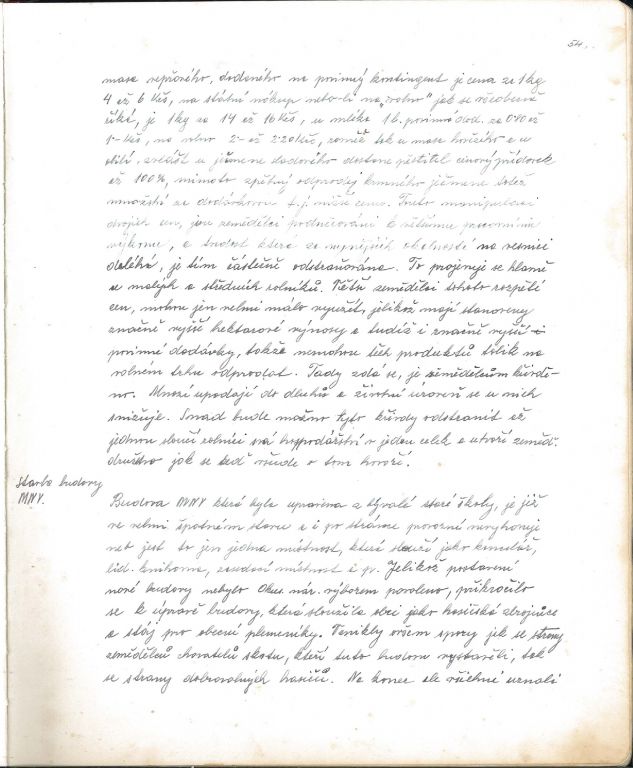 54.
masa vepřového, dodaného na povinný kontingent je cena za 1 kg
4 až 6 Kčs, na státní nákup neto-li na "volno" jak se všeobecně
říká, je 1 kg za 14 až 16 Kčs, u mléka 1 l. povinná dod. za 0·90 až
1·- Kčs, na volno 2·- až 2·20 Kčs, rovněž tak u masa hovězího a u
obilí, zvlášť u ječmene dodaného dostane pěstitel cenový přídavek
až 100%, mimoto zpětný odprodej krmného ječmene totéž
množství za dodávkovou t. j. nižší cenu. Touto manipulací
dvojích cen, jsou zemědělci podněcováni k většímu pracovnímu
výkonu, a tudost která za nynějších okolností na vesnici
doléhá, je tím částečně odstraňována. To projevuje se hlavně
u malých a středních rolníků. Větší zemědělci tohoto rozpětí
cen, mohou jen velmi málo využít, jelikož mají stanoveny
značně vyšší hektarové výnosy a tudíž i značně vyšší i
povinné dodávky, takže nemohou těch produktů tolik na
volném trhu odprodat. Tady zdá se, je zemědělcům křivdě-
no. Mnozí upadají do dluhů a životní úroveň se u nich
snižuje. Snad bude možno tyto křivdy odstranit až
jednou sloučí rolníci svá hospodářství v jeden celek a utvoří zeměd.
družstvo jak se teď všude o tom hovoří.
Stavba budovy
MNV.
Budova MNV která byla upravena z bývalé staré školy, je již
ve velmi špatném stavu a i po stránce provozní nevyhovuje
neb jest to jen jedna místnost, která slouží jako kancelář,
lid. knihovna, zasedací místnost a p. Jelikož postavení
nové budovy nebylo Okres. nár. výborem povoleno, přikročilo
se k úpravě budovy, která sloužila obci jako hasičská zbrojnice
a stáj pro obecní plemeníky. Vznikly ovšem spory jak se strany
zemědělců chovatelů skotu, kteří tuto budovu vystavěli, tak
se strany dobrovolných hasičů. Na konec ale všichni uznali